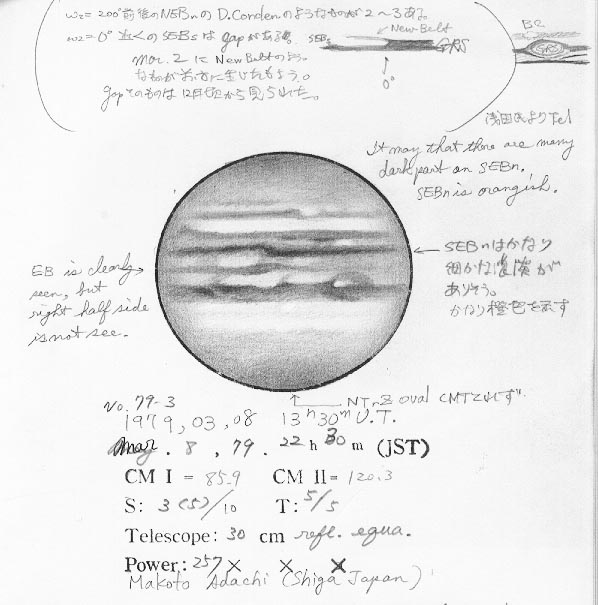 ω₂=200°前後のNEBnのD.Condenのようなものが2〜3ある。
ω₂=0°近くのSEBsはgapがある。
SEBs
New Belt
GRS
0°
BR
GRS
Mar. 2 に New Beltのよう
なものがおすに生じたもよう。
gapそのものは12月頃から見られた。
浅田氏よりTel
It may that there are many
dark part on SEBn,
SEBn is orangish.
EB is clearly
seen, but
right half side
is not see.
SEBnはかなり
細かな濃淡が
ありそう。
かなり橙色を示す
NTrZ oval CMTとれず
No. 79-3
1979, 03, 08 13h 30m U.T.
Mar. 8, 79. 22 h 30 m (JST)
CM I = 85.9 CM II= 120.3
S: 3 (5)/10 T: 5/5
Telescope: 30 cm refl. equa.
Power: 257× × ×
Makoto Adachi (Shiga Japan)